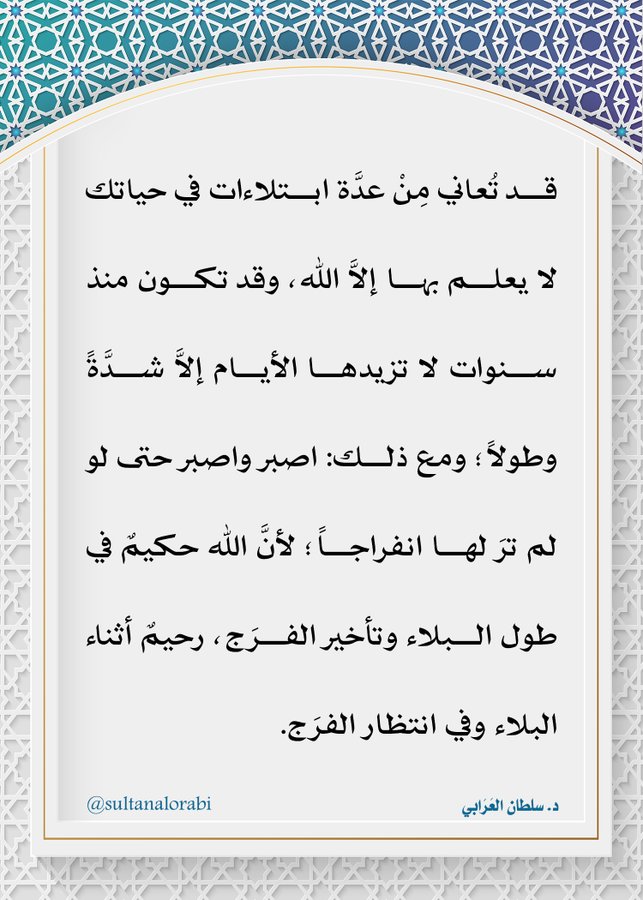 قد تُعاني مِنْ عدَّة ابتلاءات في حياتك
لا يعلم بها إلاَّ الله، وقد تكون منذ
سنوات لا تزيدها الأيام إلاَّ شدَّةً
وطولاً؛ ومع ذلك: اصبر واصبر حتى لو
لم ترَ لها انفراجاً؛ لأنَّ الله حكيمٌ في
طول البلاء وتأخير الفرَج، رحيمٌ أثناء
البلاء وفي انتظار الفرَج.
د. سلطان العَرَابي
@sultanalorabi